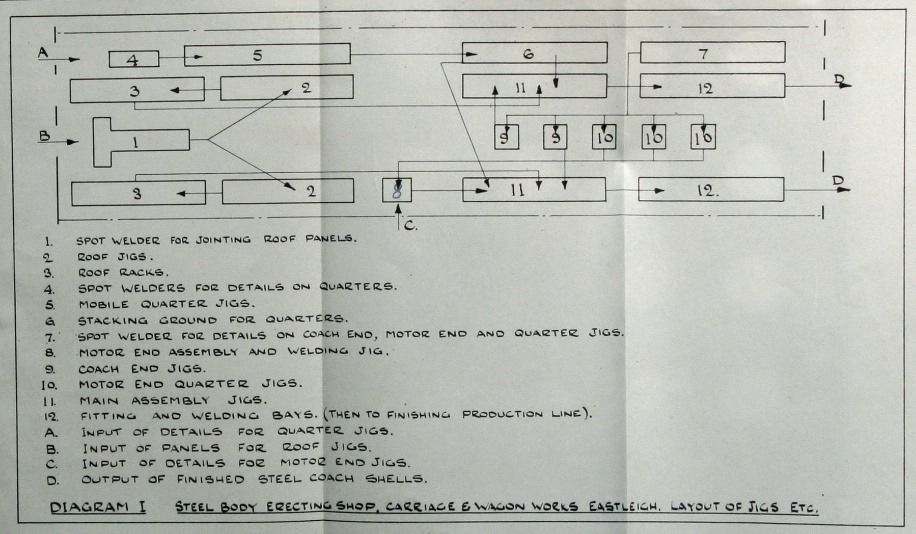 A 4 5 6 7
3 2 11 12 D
B 1 9 9 10 10 10
3 2 8 11 12. D
C.
1. SPOT WELDER FOR JOINTING ROOF PANELS.
2 ROOF JIGS.
3. ROOF RACKS.
4. SPOT WELDERS FOR DETAILS ON QUARTERS.
5. MOBILE QUARTER JIGS.
6 STACKING GROUND FOR QUARTERS.
7. SPOT WELDER FOR DETAILS ON COACH END, MOTOR END AND QUARTER JIGS.
8. MOTOR END ASSEMBLY AND WELDING JIG.
9. COACH END JIGS.
10. MOTOR END QUARTER JIGS.
11. MAIN ASSEMBLY JIGS.
12. FITTING AND WELDING BAYS. (THEN TO FINISHING PRODUCTION LINE).
A. INPUT OF DETAILS FOR QUARTER JIGS.
B. INPUT OF PANELS FOR ROOF JIGS.
C. INPUT OF DETAILS FOR MOTOR END JIGS.
D. OUTPUT OF FINISHED STEEL COACH SHELLS.
DIAGRAM I STEEL BODY ERECTING SHOP, CARRIAGE & WAGON WORKS EASTLEIGH. LAYOUT OF JIGS ETC.